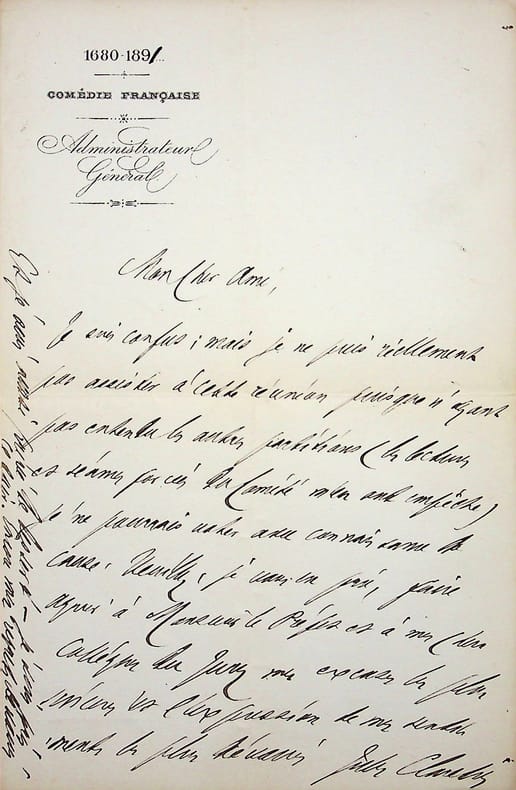 1680-1891
COMÉDIE FRANÇAISE
Administrateur
Général
Mon cher Ami,
Je suis confus ; mais je ne puis réellement
pas assister à cette réunion puisque n'ayant
pas entendu les autres partitions (les lectures
et séances forcées du Comité m'en ont empêché)
je ne pourrais voter avec connaissance de
cause. Veuillez, je vous en prie, faire
agréer à Monsieur le Préfet et à mes chers
Collègues du Jury mes excuses les plus
sincères et l'expression de mes senti-
ments les plus dévoués
Jules Claretie
Et je suis